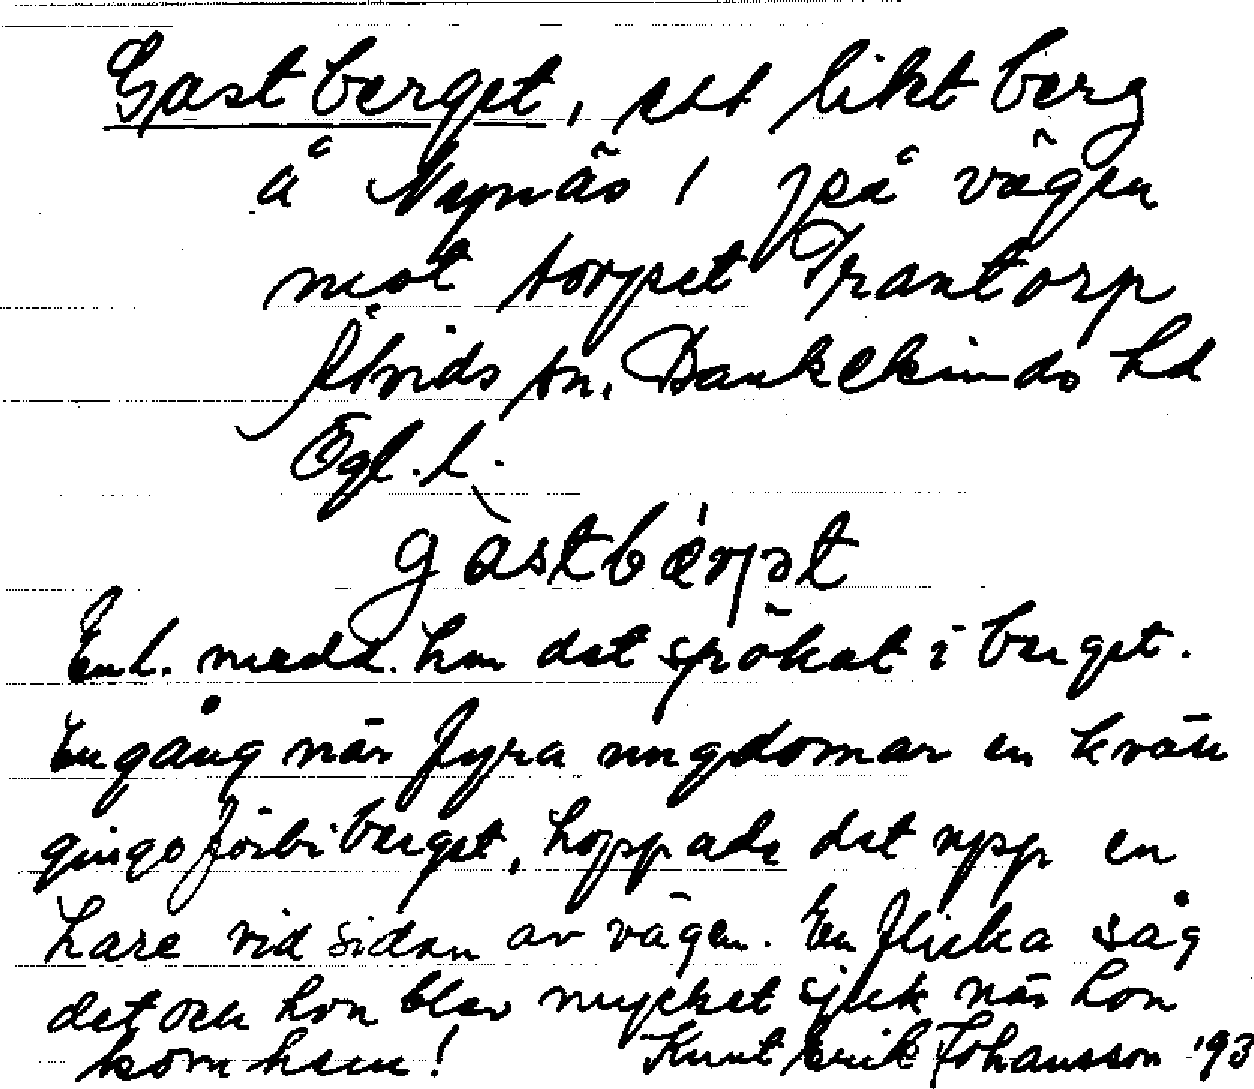 Gastberget, ett likt berg
å Nynäs / på vägen
mot torpet Trantorp
Åtvids sn, Bankekinds hd
Ögl. l.
gàstbérjət
Enl. medd. har det spökat i berget.
En gång när fyra ungdomar en kväll
gingo förbi berget, hoppade det upp en
hare vid sidan av vägen. En flicka såg
det och hon blev mycket sjuk när hon
kom hem! Knut Erik Johansson '93